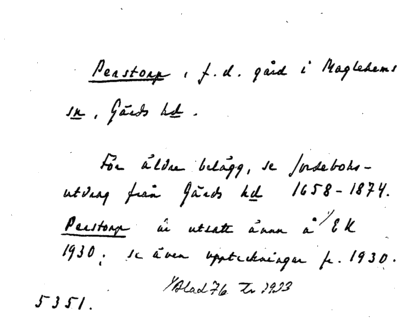 Perstorp, f.d. gård i Maglehems
sn, Gärds hd.
För äldre belägg, se Jordeboks-
utdrag från Gärds hd 1658-1874.
Perstorp är utsatt ännu å 1/ EK
1930; se även uppteckningar fr. 1930.
1/ Blad 76 Tr 1933
5351.